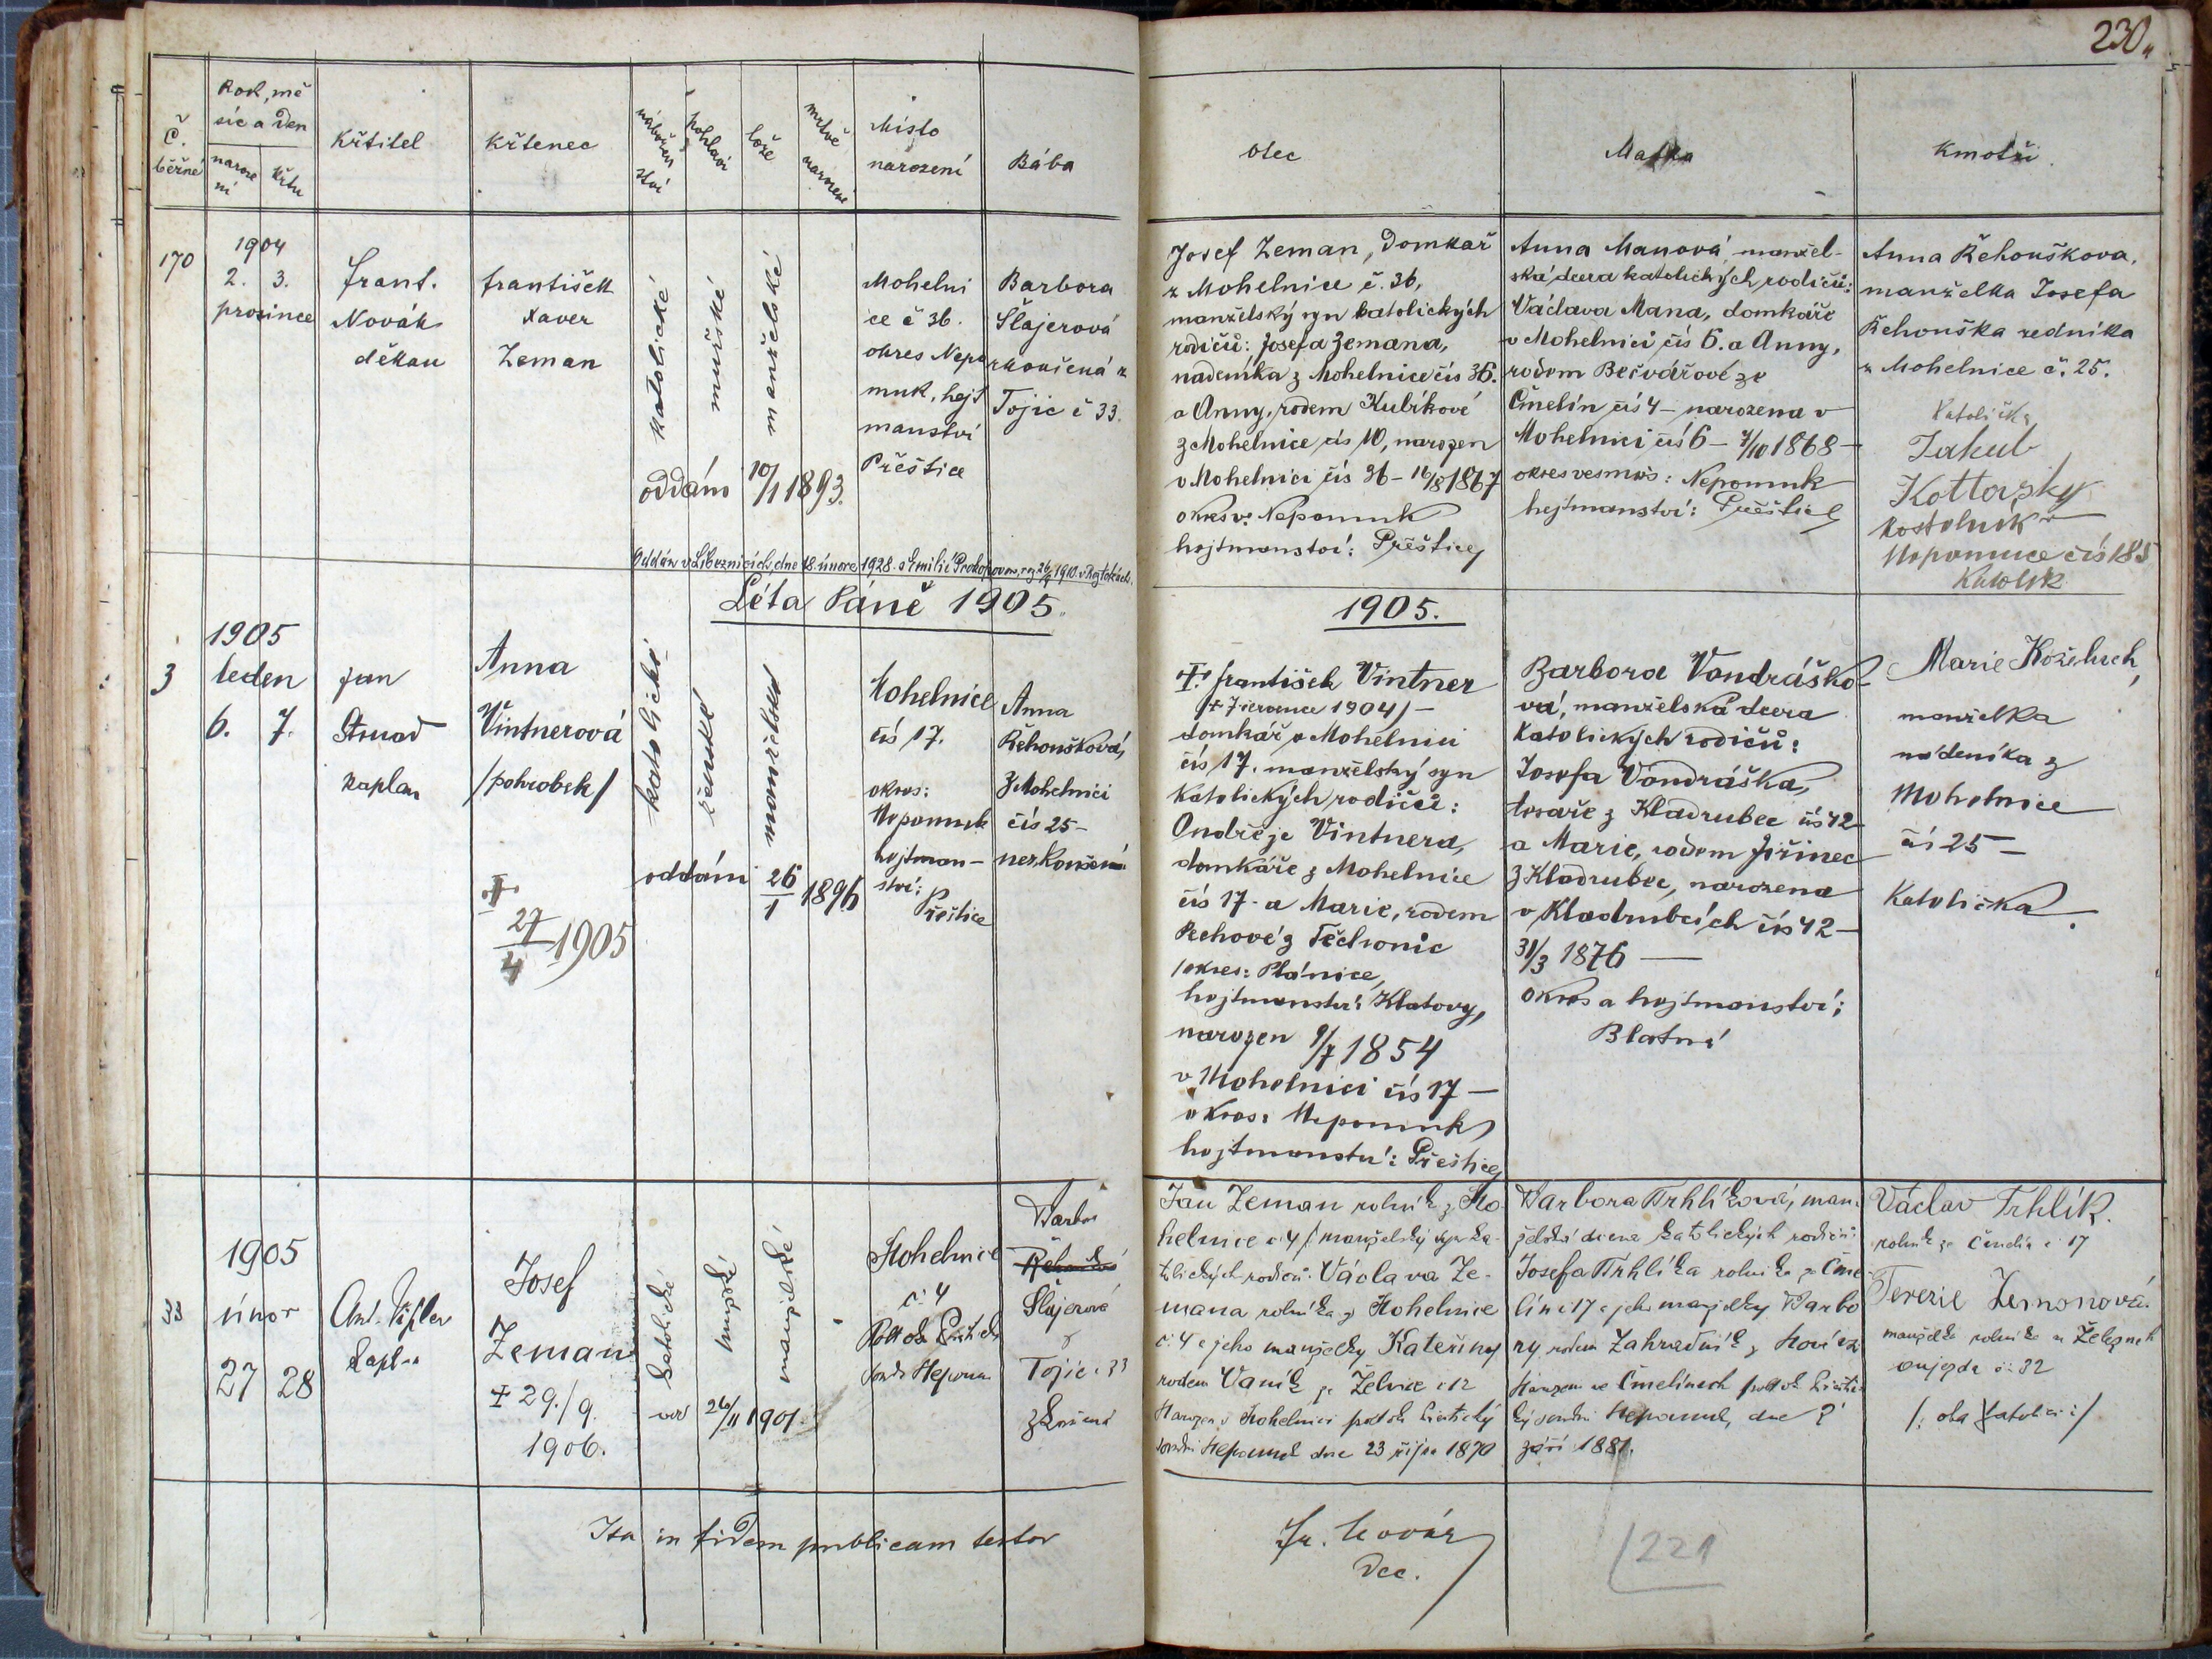 230
Rok, mě
síc a den
č.
běžné
naroze
ní
křtu
křtitel
křtenec
nábožen
ství
pohlaví
lože
mrtvě
narození
Místo
narození
Bába
Otec
Matka
Kmotři
170
1904
2. 3.
prosince
Frant.
Novák
děkan
František
Xaver
Zeman
katolické
mužské
manželské
oddáni 10/1 1893.
Mohelni
ce č 36.
okres Nepo
muk, hejt
manství
Přeštice
Barbora
Šlajerová
zkoušená z
Tojic č 33.
Josef Zeman, domkař
z Mohelnice č. 36,
manželský syn katolických
rodičů: Josefa Zemana,
nádeníka z Mohelnice čís 36.
a Anny, rodem Kubíkové
z Mohelnice čís 10, narozen
v Mohelnici čís 36 - 16/8 1867
okres: Nepomuk
hejtmanství: Přeštice
Anna Manová, manžel-
ská dcera katolických rodičů:
Václava Mana, domkáře
v Mohelnici čís 6. a Anny,
rodem Bečvářové ze
Čmelín čís 4 - narozena v
Mohelnici čís 6 - 4/10 1868 -
okres vesměs: Nepomuk
hejtmanství: Přeštice
Anna Řehouškova,
manželka Josefa
Řehouška zedníka
z Mohelnice č. 25.
Katolička
Jakub
Kottovský
kostelník
Nepomuce čís 185
Katolík
Oddán v Libeznicích dne 18. února 1928. s Emilií Prokopovou,
Léta Páně 1905.
1905.
3
1905
leden
6. 7.
Jan
Strnad
kaplan
Anna
Vintnerová
/pohrobek/
27/4 1905
katolické
ženské
manželské
oddáni 26/1 1896
Mohelnice
čís 17.
okres:
Nepomuk
hejtman-
ství:
Přeštice
Anna
Řehoušková,
z Mohelnici
čís 25 -
nezkoušená
František Vintner
/+ 7 července 1904/ -
domkář v Mohelnici
čís 17. manželský syn
katolických rodičů:
Ondřeje Vintnera,
domkáře z Mohelnice
čís 17. a Marie, rodem
Pechové z Těchonic
/okres: Plánice,
hejtmanství: Klatovy,
narozen 9/7 1854
v Mohelnici čís 17 -
okres: Nepomuk
hejtmanství: Přeštice
Barbora Vondráško-
vá, manželská dcera
katolických rodičů:
Josefa Vondráška,
tesaře z Kladrubec čís 42
a Marie, rodem Jiřinec
z Kladrubec, narozena
v Kladrubcích čís 42 -
31/3 1876 -
Okres a hejtmanství:
Blatná
Marie Koželuch,
manželka
nádeníka z
Mohelnice
čí 25 -
Katolička.
33
1905
únor
27 28
Ant.
kaplan
Josef
Zeman
+ 29./9.
1906.
katolické
mužské
manželské
26/11 1901
Mohelnice
č. 4
Barbora
Šlajerová
z
Tojic č 33
zkoušená
Jan Zeman rolník z Mo-
helnice č. 4 / manželský syn ka-
tolických rodičů: Václava Ze-
mana rolníka z Mohelnice
č. 4 a jeho manželky Kateřiny
rodem Vaník ze Želvice č 12
Narozen v Mohelnici
soudní Nepomuk dne 23 října 1870
Barbora Trhlíková, man-
želská dcera katolických rodičů:
Josefa Trhlíka rolníka z Čme-
lín č 17 a jeho manželky Barbo
ry rodem Zahradník z
Narozena ve Čmelínech
soudní Nepomuk, dne ?
září 1881.
Václav Trhlík.
rolník ze Čmelín č 17
Terezie Zemanová.
manželka rolníka z Železného
oujezda č: 32
/: oba katolíci :/
Ita in fidem publicam testor
Fr. Novák
Dec.
221